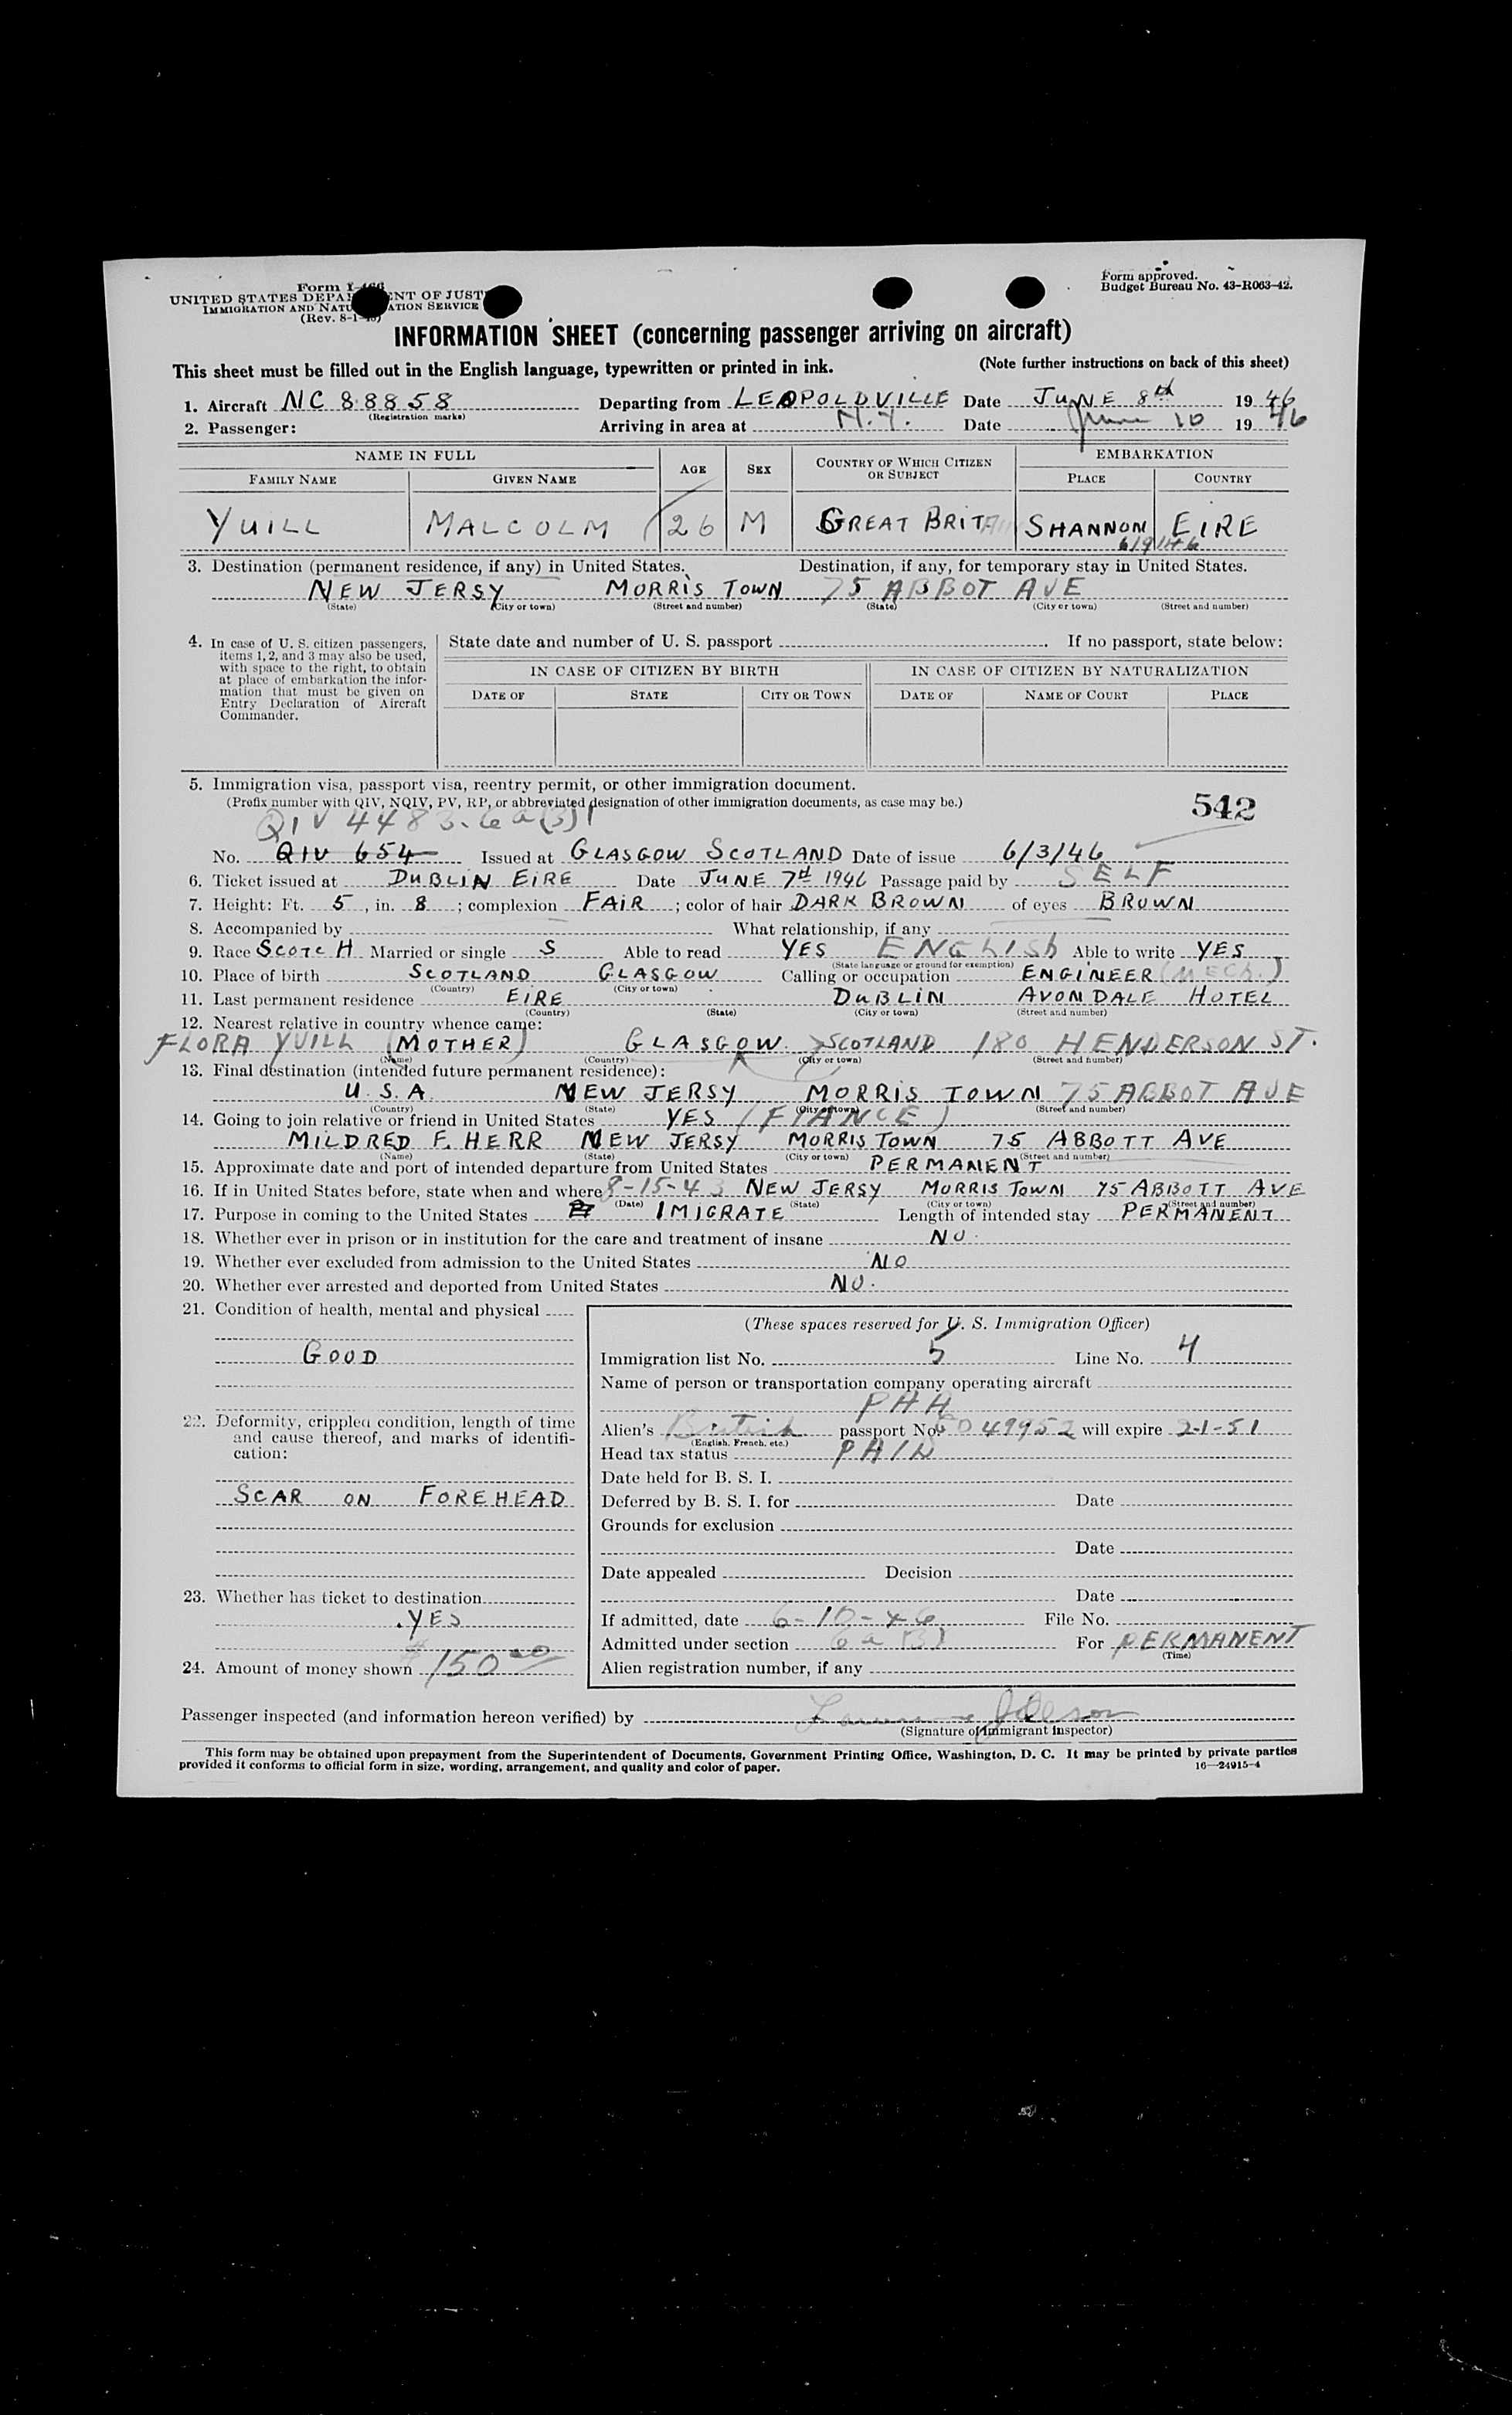 Form I-466
UNITED STATES DEPARTMENT OF JUSTICE
IMMIGRATION AND NATURALIZATION SERVICE
(Rev. 8-1-45)
Form approved.
Budget Bureau No. 43-R063-42.
INFORMATION SHEET (concerning passenger arriving on aircraft)
This sheet must be filled out in the English language, typewritten or printed in ink. (Note further instructions on back of this sheet)
1. Aircraft NC 88858 Departing from LEOPOLDVILLE Date JUNE 8th 1946
(Registration marks)
2. Passenger: Arriving in area at N.Y. Date June 10 1946
NAME IN FULL AGE SEX COUNTRY OF WHICH CITIZEN OR SUBJECT EMBARKATION
FAMILY NAME GIVEN NAME PLACE COUNTRY
YUILL MALCOLM 26 M GREAT BRITAIN SHANNON EIRE
6/9/46
3. Destination (permanent residence, if any) in United States. Destination, if any, for temporary stay in United States.
NEW JERSY MORRIS TOWN 75 ABBOT AVE
(State) (City or town) (Street and number) (State) (City or town) (Street and number)
4. In case of U. S. citizen passengers, items 1, 2, and 3 may also be used, with space to the right, to obtain at place of embarkation the information that must be given on Entry Declaration of Aircraft Commander.
State date and number of U. S. passport If no passport, state below:
IN CASE OF CITIZEN BY BIRTH IN CASE OF CITIZEN BY NATURALIZATION
DATE OF STATE CITY OR TOWN DATE OF NAME OF COURT PLACE
5. Immigration visa, passport visa, reentry permit, or other immigration document.
(Prefix number with QIV, NQIV, PV, RP, or abbreviated designation of other immigration documents, as case may be.)
542
QIV 4483-6a(3)
No. QIV 654 Issued at GLASGOW SCOTLAND Date of issue 6/3/46
6. Ticket issued at DUBLIN EIRE Date JUNE 7th 1946 Passage paid by SELF
7. Height: Ft. 5, in. 8; complexion FAIR; color of hair DARK BROWN of eyes BROWN
8. Accompanied by What relationship, if any
9. Race SCOTCH Married or single S Able to read YES ENGLISH Able to write YES
(State language or ground for exemption)
10. Place of birth SCOTLAND GLASGOW Calling or occupation ENGINEER (MECH.)
(Country) (City or town)
11. Last permanent residence EIRE DUBLIN AVONDALE HOTEL
(Country) (State) (City or town) (Street and number)
12. Nearest relative in country whence came:
FLORA YUILL (MOTHER) GLASGOW SCOTLAND 180 HENDERSON ST.
(Name) (Country) (City or town) (Street and number)
13. Final destination (intended future permanent residence):
U.S.A. NEW JERSY MORRIS TOWN 75 ABBOT AVE
(Country) (State) (City or town) (Street and number)
14. Going to join relative or friend in United States YES (FIANCE)
MILDRED F. HERR NEW JERSY MORRIS TOWN 75 ABBOTT AVE
(Name) (State) (City or town) (Street and number)
15. Approximate date and port of intended departure from United States PERMANENT
16. If in United States before, state when and where 8-15-43 NEW JERSY MORRIS TOWN 75 ABBOTT AVE
(Date) (State) (City or town) (Street and number)
17. Purpose in coming to the United States IMIGRATE Length of intended stay PERMANENT
18. Whether ever in prison or in institution for the care and treatment of insane NO.
19. Whether ever excluded from admission to the United States NO
20. Whether ever arrested and deported from United States NO.
21. Condition of health, mental and physical
GOOD
22. Deformity, crippled condition, length of time and cause thereof, and marks of identification:
SCAR ON FOREHEAD
23. Whether has ticket to destination
YES
24. Amount of money shown $150.00
(These spaces reserved for U. S. Immigration Officer)
Immigration list No. 5 Line No. 4
Name of person or transportation company operating aircraft
PAA
Alien's British passport No. 49952 will expire 2-1-51
(English, French, etc.)
Head tax status PAID
Date held for B. S. I.
Deferred by B. S. I. for Date
Grounds for exclusion
Date
Date appealed Decision
Date
If admitted, date 6-10-46 File No.
Admitted under section 6a(3) For PERMANENT
(Time)
Alien registration number, if any
Passenger inspected (and information hereon verified) by
(Signature of Immigrant Inspector)
This form may be obtained upon prepayment from the Superintendent of Documents, Government Printing Office, Washington, D. C. It may be printed by private parties
provided it conforms to official form in size, wording, arrangement, and quality and color of paper. 16—24915-4